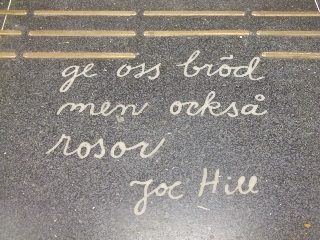 ge oss bröd
men också
rosor
Joe Hill